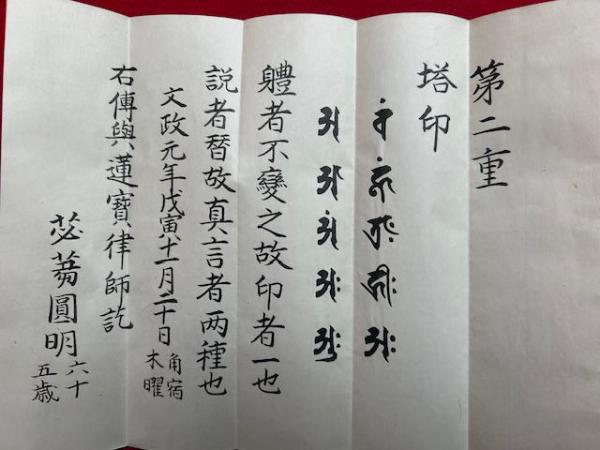 第二重
塔印
軆者不變之故印者一也
説者替故真言者两種也
文政元年戊寅十一月二十日
角宿
木曜
右傳與蓮寶律師訖
苾蒭圓明
六十
五歳